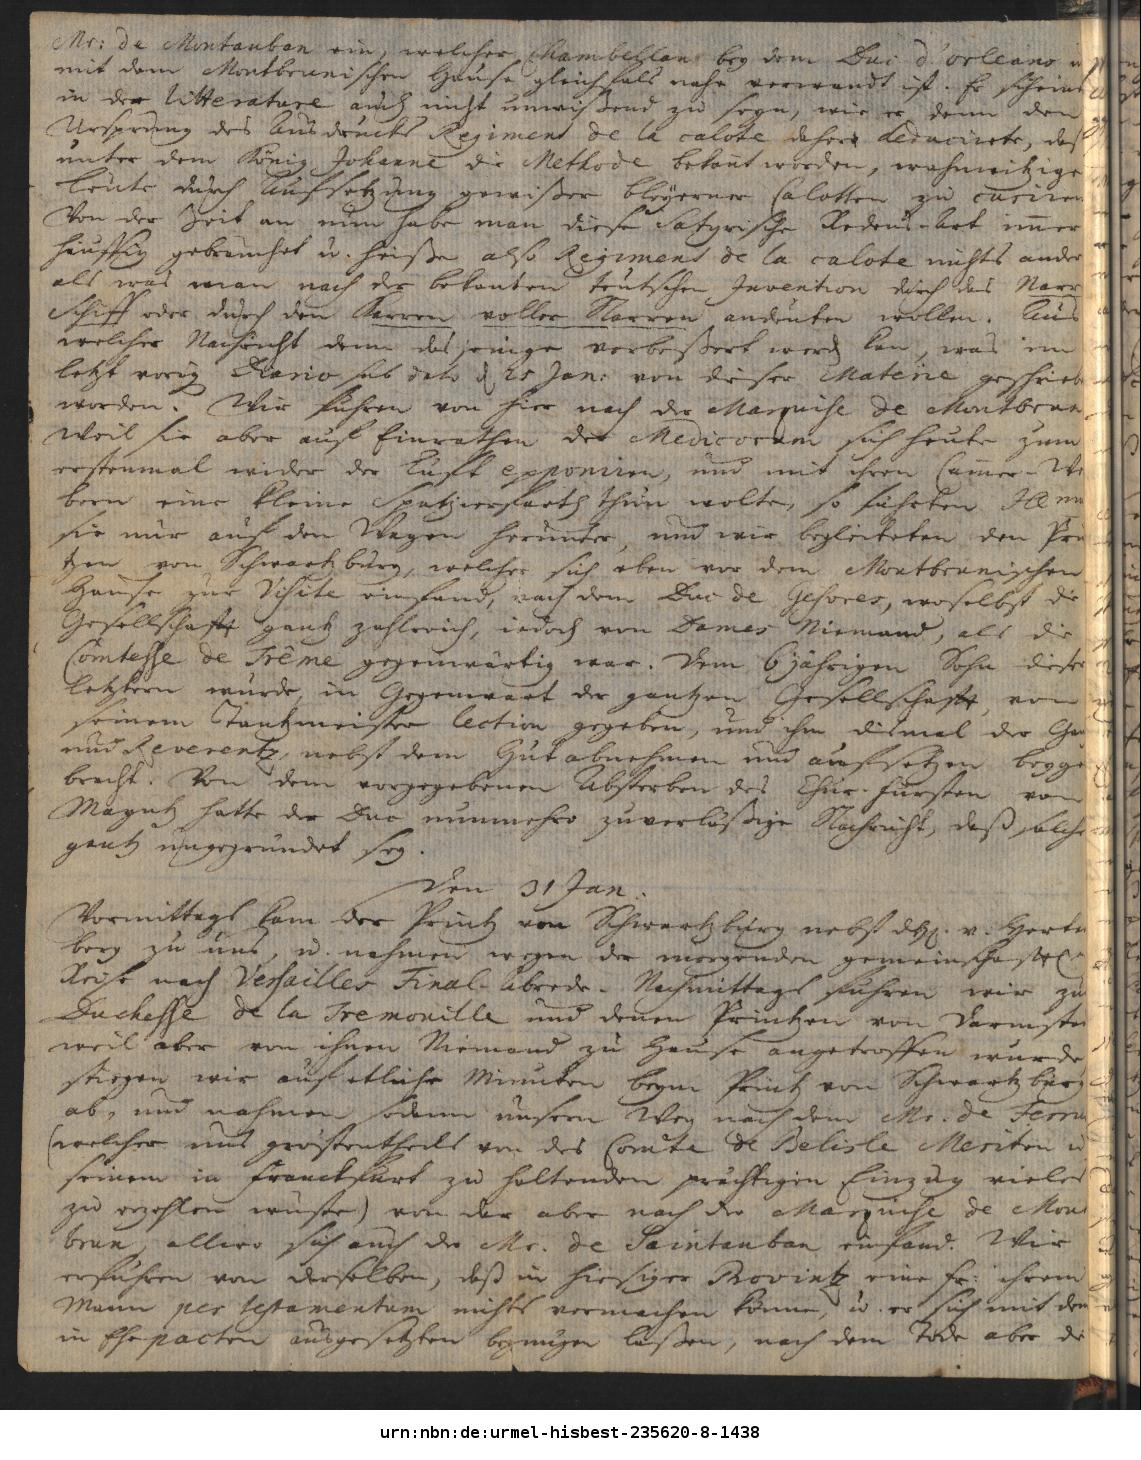 Mr: de Montauban ein, welcher Chambellan bey dem Duc d'orleans u
mit dem Montbrunischen Hause gleichfals nahe verwandt ist. Er scheint
in der litterature auch nicht unwißend zu seyn, wie er denn den
Ursprung des Ausdrucks Regiment de la calote daher deducirte, daß
unter dem König Johanne die Methode bekant worden, wahnwitzige
Leute durch Aufsetzung gewißer bleyerner Calotten zu curiren
Von der Zeit an nun habe man diese Satyrische Redens-Art immer
häuffig gebrauchet u. heiße also Regiment de la calote nichts ander
als was man nach der bekanten teutschen Invention durch das Narr
Schiff oder durch den Karren voller Narren andeuten wollen. Aus
welcher Nachricht denn dasjenige verbeßert werd kan, was im
letzt vorig Diario sub dato d 25 Jan: von dieser Materie geschrieb
worden. Wir fuhren von hier nach der Marquise de Montbrun
Weil sie aber auf Einrathen der Medicorum sich heute zum
erstenmal wider der Luft exponiren, und mit ihren Cammer-We
bern eine kleine Spatzierfarth thun wolte, so führten
sie nur auf den Wagen herunter, und wir begleiteten den Prin
tzen von Schwartzburg, welcher sich eben vor dem Montbrunischen
Hause zur Visite einfand, nach dem Duc de Gesvres, woselbst die
Gesellschaft gantz zahlreich, iedoch von Dames Niemand, als die
Comtesse de Trême gegenwärtig war. Dem 6jährigen Sohn dieser
letztern wurde, in Gegenwart der gantzen Gesellschaft, von
seinem Tantzmeister lection gegeben, und ihm dismal der
und Reverentz, nebst dem Hut abnehmen und aufsetzen beyge
bracht. Von dem vorgegebenen Absterben des Chur-Fürsten von
Mayntz hatte der Duc nunmehro zuverläßige Nachricht, daß solche
gantz ungegründet sey.
Den 31 Jan.
Vormittags kam der Printz von Schwartzburg nebst v. Hertn
berg zu uns, u. nahmen wegen der morgenden gemeinschaftl.
Reise nach Versailles Final-Abrede. Nachmittags fuhren wir zu
Duchesse de la Tremouille und denen Printzen von Darmstad
weil aber von ihnen Niemand zu Hause angetroffen wurde
stiegen wir auf etliche Minuten beym Printz von Schwartzburg
ab, und nahmen sodann unsern Weg nach dem Mr. de
(welcher uns gröstentheils von des Comte de Belisle Meriten u
seinem in Franckfurt zu haltenden prächtigen Einzug vieles
zu erzehlen wuste) von dar aber nach der Marquise de Mont
brun, allwo sich auch der Mr. de Saintauban einfand. Wir
erfuhren von derselben, daß in hiesiger Provintz eine Fr: ihrem
Mann per testamentum nichts vermachen könne, u. er sich mit den
in Ehepacten ausgesetzten begnügen laßen, nach dem Tode aber de